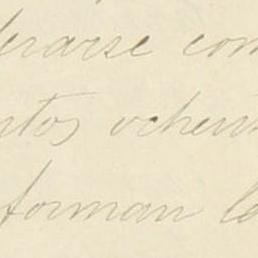 derarse com
ntos ochent
forman la